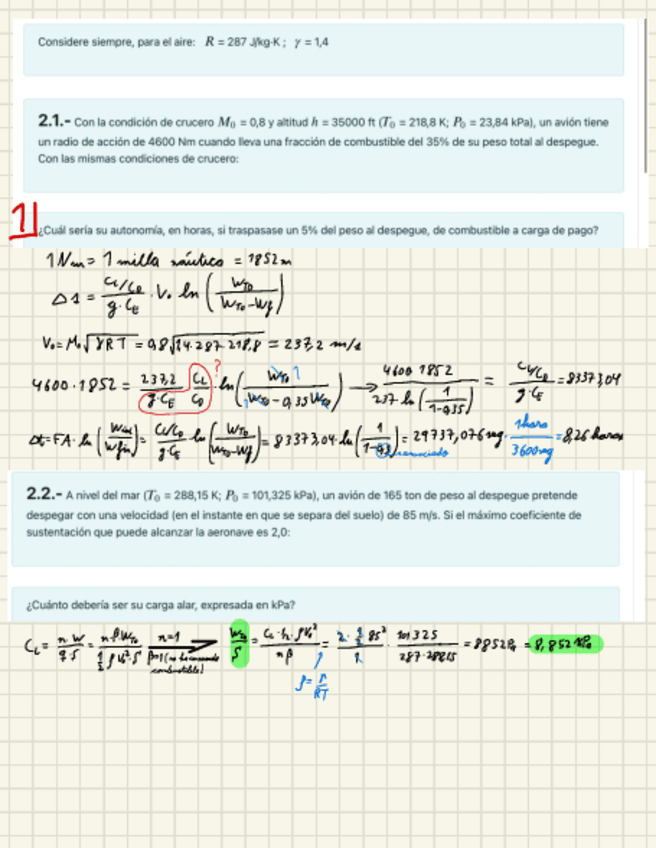 Considere siempre, para el aire: R = 287 J/kg·K ; γ = 1,4
2.1.- Con la condición de crucero M₀ = 0,8 y altitud h = 35000 ft (T₀ = 218,8 K; P₀ = 23,84 kPa), un avión tiene
un radio de acción de 4600 Nm cuando lleva una fracción de combustible del 35% de su peso total al despegue.
Con las mismas condiciones de crucero:
1|
¿Cuál sería su autonomía, en horas, si traspasase un 5% del peso al despegue, de combustible a carga de pago?
1 Nm = 1 milla náutica = 1852 m
Δs = (CL/CD)/(g·CE) · V₀ ln (WTO/(WTO-Wf))
V₀ = M₀ √(γRT) = 0,8 √(1,4·287·218,8) = 237,2 m/s
4600·1852 = 237,2/(g·CE) CL/CD ? · ln (WTO/(WTO - 0,35 WTO)) → 4600·1852/(237 ln (1/(1-0,35))) = (CL/CD)/(g·CE) = 83373,04
Δt = FA · ln = (CL/CD)/(g·CE) ln (WTO/(WTO-Wf)) = 83373,04 · ln = 29737,076 seg · 1 hora/3600 seg = 8,26 horas
2.2.- A nivel del mar (T₀ = 288,15 K; P₀ = 101,325 kPa), un avión de 165 ton de peso al despegue pretende
despegar con una velocidad (en el instante en que se separa del suelo) de 85 m/s. Si el máximo coeficiente de
sustentación que puede alcanzar la aeronave es 2,0:
¿Cuánto debería ser su carga alar, expresada en kPa?
CL = n W/(q·S) = n β WTO/(½ ρ V₀² S) n=1 = = 2·½ 85²/1 · 101325/(287·288,15) = 8852 Pa = 8,852 kPa
ρ = P/RT